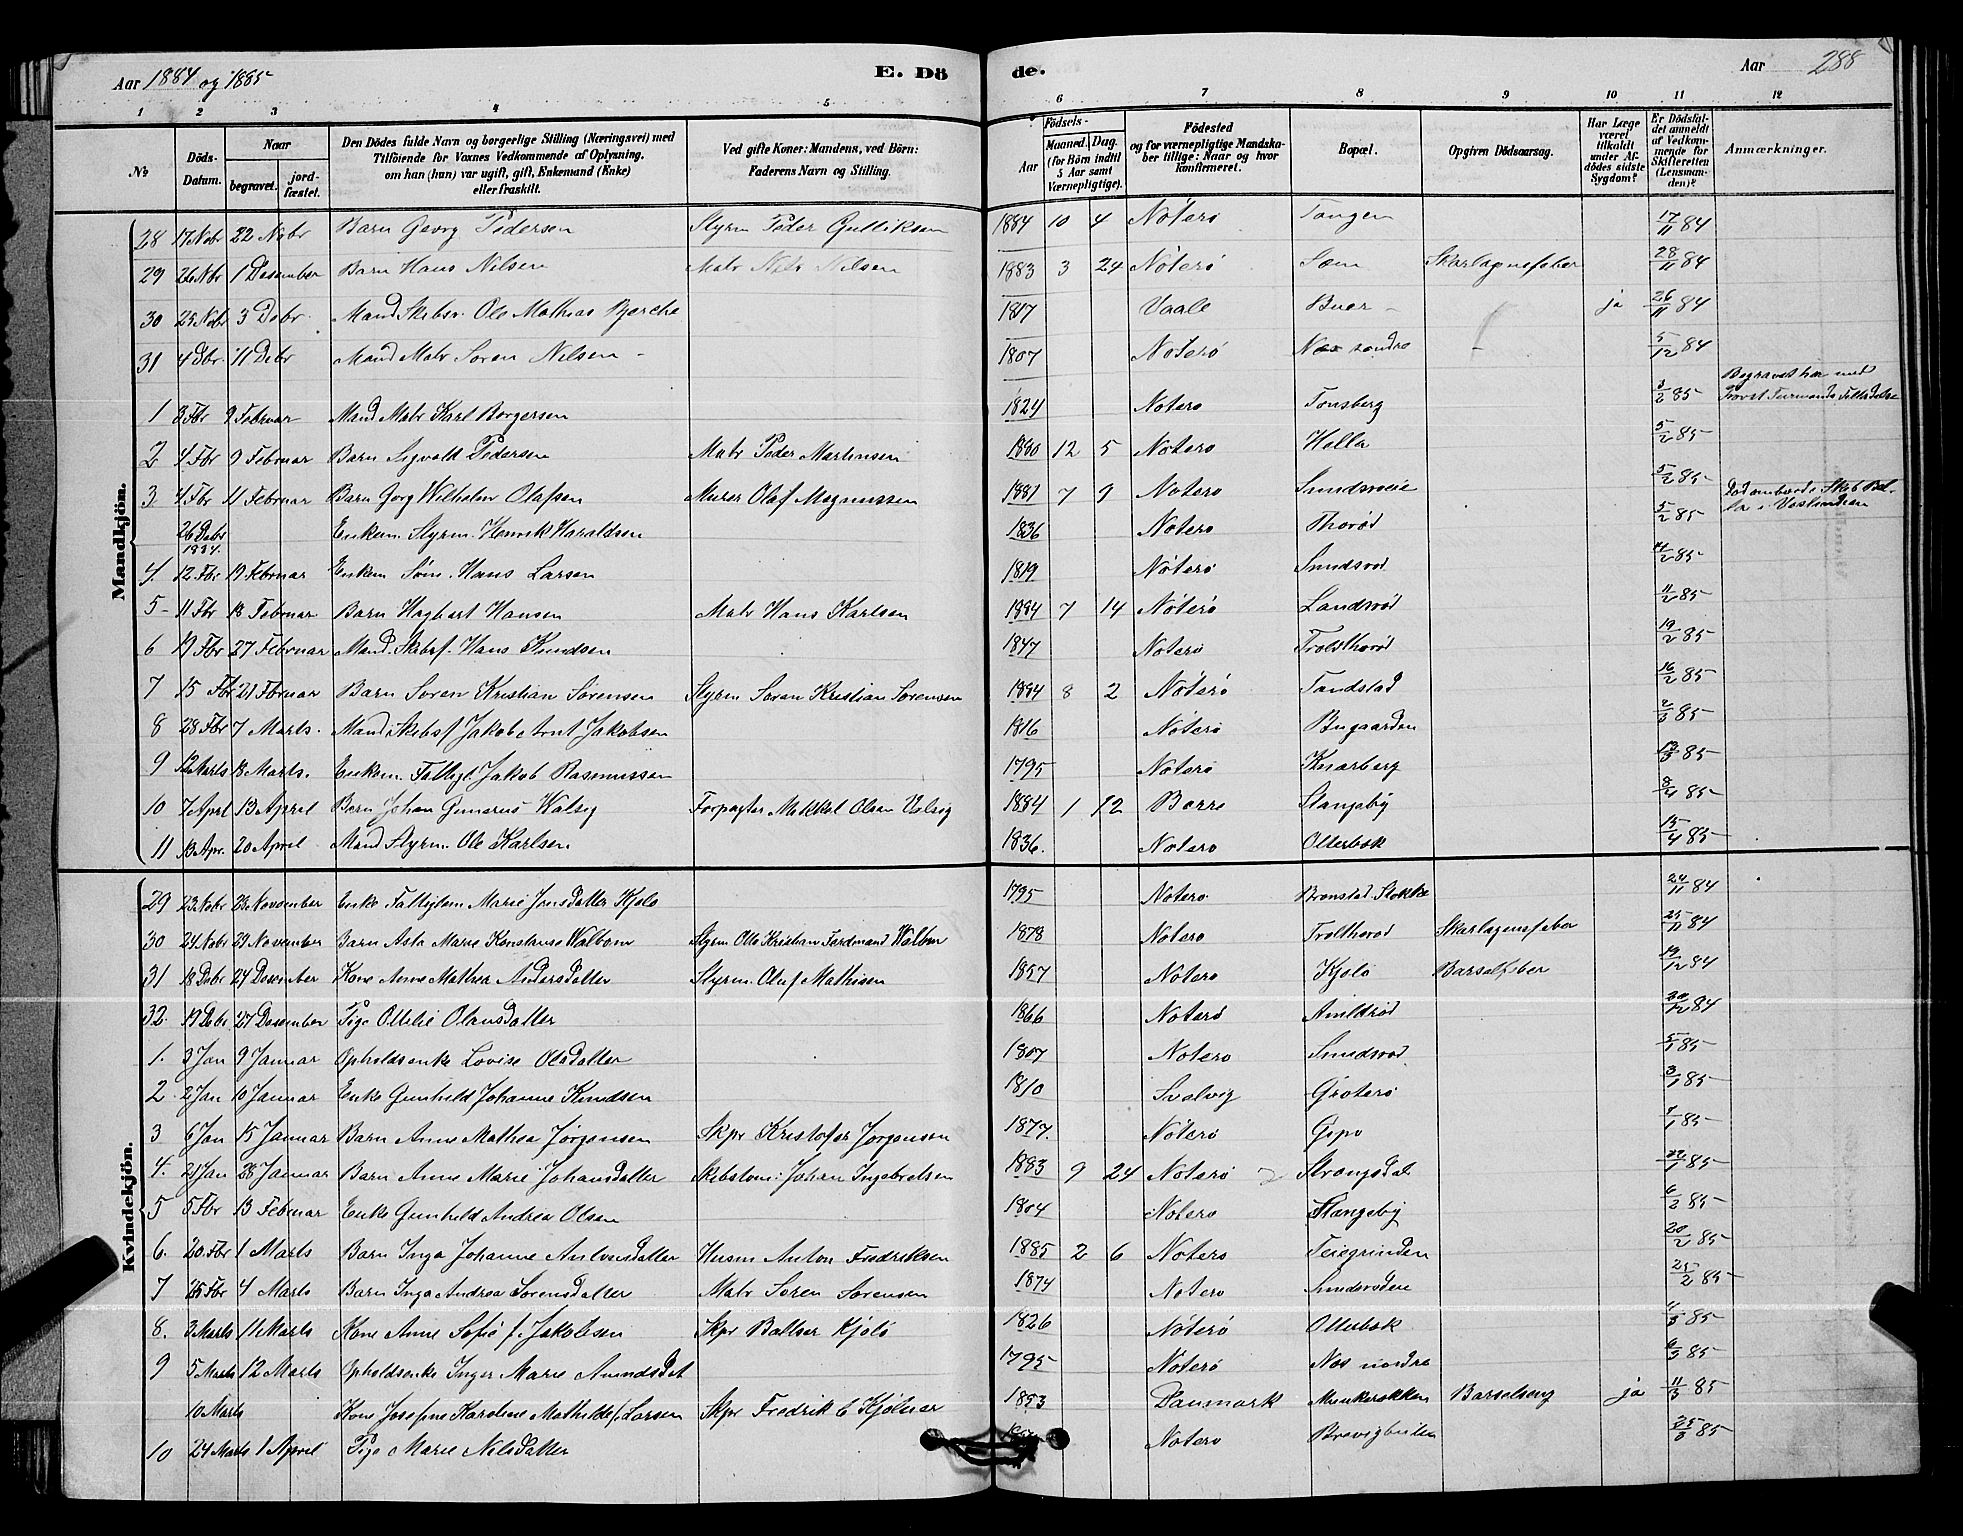 Aar 1884 og 1885
E. Dö
de.
Aar
288
1 2 3 4 5 6 7 8 9 10 11 12
No
Döds-Datum.
Naar
begravet.
jordfæstet.
Den Dödes fulde Navn og borgerlige Stilling (Næringsvei) med
Tilföiende for Voxnes Vedkommende af Oplysning,
om han (hun) var ugift, gift, Enkemand (Enke)
eller fraskilt.
Ved gifte Koner: Mandens, ved Börn:
Faderens Navn og Stilling.
Födsels-
Aar
Maaned. Dag.
(for Börn indtil
5 Aar samt
Værnepligtige).
Födested
og for værnepligtige Mandska-
ber tillige: Naar og hvor
konfirmeret.
Bopæl.
Opgiven Dödsaarsag.
Har Læge
været
tilkaldt
under Af-
dödes sidste
Sygdom?
Er Dödsfal-
det anmeldt
af Vedkom-
mende for
Skifteretten
(Lensman-
den)?
Anmærkninger.
Mandkjön.
28 17 Nobr 22 Nobr Barn Georg Pedersen Styrm Peder Gulliksen 1884 10 4 Nøterø Tangen 17/11 84
29 26 Nbr 1 Desember Barn Hans Nilsen Matr Nils Nilsen 1883 3 24 Nøterø Sem Skarlagensfeber 28/11 84
30 25 Nobr 3 Debr Mand Skibsr. Ole Mathias Bjerche 1817 Vaale Buer ja 26/11 84
31 4 Dbr 11 Debr Mand Matr Soren Nilsen 1807 Nøterø Nes søndre 5/12 84
1 3 Fbr 9 Februar Mand Matr Karl Borgersen 1824 Noterø Tonsberg 3/2 85 Begravet her med Provst Tilladelse
2 4 Fbr 9 Februar Barn Sigvald Pedersen Matr Peder Martinsen 1880 12 5 Noterø Hella 5/2 85
3 4 Fbr 11 Februar Barn Gorg Wilhelm Olafsen Murer Olaf Magnussen 1881 7 9 Noterø Smidsveie 5/2 85
26 Debr 1884. Enkem. Styrm. Henrik Haraldsen 1836 Noterø Thorød 5/2 85 Død ombord i Skib i Vestindien
4. 12 Fbr 19 Februar Enkem Søm. Hans Larsen 1819 Nøterø Smidsrød 14/2 85
5 11 Fbr 18 Februar Barn Hagbart Hansen Matr Hans Karlsen 1884 7 14 Nøterø Landsrød 11/2 85
6 19 Fbr 27 Februar Mand. Skibsf. Hans Knudsen 1847 Noterø Trolsthorød 19/2 85
7 15 Fbr 21 Februar Barn Soren Kristian Sørensen Styrm Soren Kristian Sorensen 1884 8 2 Nøterø Tandstad 16/2 85
8 28 Fbr 7 Marts. Mand Skibsf Jakob Arnt Jakobsen 1816 Nøterø Bugaarden 2/3 85
9 12 Marts 18 Marts. Enkem. Fattigl. Jakob Rasmussen 1795 Noterø Knarberg 13/3 85
10 7 April 13 April Barn Johan Gunerius Walsig Forpagter Mikkel Olsen Valsig 1884 1 12 Borre Stangeby 8/4 85
11 13 Apr. 20 April Mand Styrm. Ole Karlsen 1836. Noterø Otterbek 15/4 85
Kvindekjön.
29 23 Nobr 28 November Enke Fattiglem Marie Jensdatter Kjølø 1795 Noterø Brønstad Stokke 24/11 84
30 24 Nobr 29 November Barn Asta Marie Konstanse Walbom Styrm Olle Kristian Ferdinand Walbom 1878 Noterø Trolthorød Skarlagensfeber 25/11 84
31 18 Debr 24 Desember Kone Anne Mathea Andersdatter Styrm. Oluf Mathisen 1857 Noterø Kjølø Barselfeber 19/12 84
32. 19 Debr 27 Desember Pige Ottilie Olausdatter 1866 Noterø Amildrød 20/12 84
1. 3 Jan 9 Januar Opholdsenke Lovise Olsdatter 1807 Noterø Smidsrød 5/1 85
2 2 Jan 10 Januar Enke Gunhild Johanne Knudsen 1810 Svelvig Grøterø 3/1 85
3 6 Jan 15 Januar Barn Anne Mathea Jørgensen Skpr Kristofer Jørgensen 1877. Nøterø Gipø 7/1 85
4. 21 Jan 28 Januar Barn Anne Marie Johansdatter Skibstøm: Johan Ingebretsen 1883 9 24 Noterø Strengsdal 22/1 85
5 5 Fbr 13 Februar Enke Gunhild Andrea Olsen 1804 Noterø Stangeby 6/2 85
6. 20 Fbr 1 Marts Barn Inga Johanne Antonsdatter Husm Anton Fredriksen 1885 2 6 Noterø Teiegrinden 20/2 85
7 25 Fbr 4 Marts Barn Inga Andrea Sørensdatter Matr Soren Sørensen 1874 Noterø Smidsrøden 25/2 85
8. 3 Marts 11 Marts Kone Anne Sofie f. Jakobsen Skpr Baltser Kjølø 1826 Nøterø Otterbek 4/3 85
9 5 Marts 12 Marts Opholdsenke Inger Marie Amundsdat 1795 Nøterø Nes nordre 6/3 85
10 Marts Kone Josefine Karoline Mathilde f. Larsen Skpr Fredrik C Kjølner 1853 Danmark Munkerekken Barselseng ja 11/3 85
10 24 Marts 1 April Pige Marie Nilsdatter Noterø Brevigbuten 25/3 85